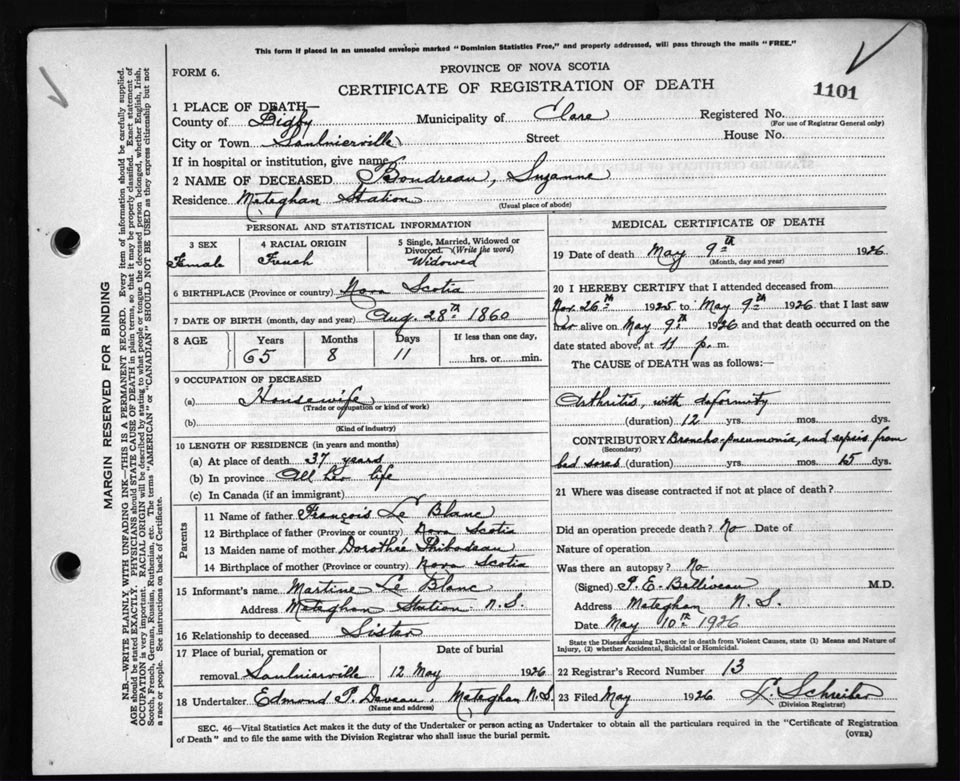 This form if placed in an unsealed envelope marked "Dominion Statistics Free," and properly addressed, will pass through the mails "FREE."
FORM 6.
PROVINCE OF NOVA SCOTIA
CERTIFICATE OF REGISTRATION OF DEATH
1101
1 PLACE OF DEATH—
County of Digby Municipality of Clare Registered No.
(For use of Registrar General only)
City or Town Saulnierville Street House No.
If in hospital or institution, give name
2 NAME OF DECEASED Boudreau, Suzanne
Residence Meteghan Station
(Usual place of abode)
PERSONAL AND STATISTICAL INFORMATION
3 SEX 4 RACIAL ORIGIN 5 Single, Married, Widowed or Divorced. (Write the word)
Female French Widowed
6 BIRTHPLACE (Province or country) Nova Scotia
7 DATE OF BIRTH (month, day and year) Aug. 28th 1860
8 AGE Years Months Days If less than one day,
65 8 11 hrs. or min.
9 OCCUPATION OF DECEASED
(a) Housewife
(Trade or occupation or kind of work)
(b)
(Kind of industry)
10 LENGTH OF RESIDENCE (in years and months)
(a) At place of death 37 years
(b) In province All her life
(c) In Canada (if an immigrant)
Parents
11 Name of father François Le Blanc
12 Birthplace of father (Province or country) Nova Scotia
13 Maiden name of mother Dorothée Thibodeau
14 Birthplace of mother (Province or country) Nova Scotia
15 Informant's name Martine Le Blanc
Address Meteghan Station N.S.
16 Relationship to deceased Sister
17 Place of burial, cremation or Date of burial
removal Saulnierville 12 May 1926
18 Undertaker Edmond P. Deveau, Meteghan N.S.
(Name and address)
MEDICAL CERTIFICATE OF DEATH
19 Date of death May 9th 1926
(Month, day and year)
20 I HEREBY CERTIFY that I attended deceased from
Nov. 26th 1925 to May 9th 1926 that I last saw
her alive on May 9th 1926 and that death occurred on the
date stated above, at 11 p. m.
The CAUSE of DEATH was as follows:
Arthritis, with deformity
(duration) 12 yrs. mos. dys.
CONTRIBUTORY Broncho-pneumonia, and sepsis from
(Secondary)
bed sores (duration) yrs. mos. 15 dys.
21 Where was disease contracted if not at place of death?
Did an operation precede death? No Date of
Nature of operation
Was there an autopsy? No
(Signed) P. E. Belliveau M.D.
Address Meteghan N.S.
Date May 10th 1926
State the Disease causing Death, or in death from Violent Causes, state (1) Means and Nature of
Injury, (2) whether Accidental, Suicidal or Homicidal.
22 Registrar's Record Number 13
23 Filed May 1926 L. Schreiber
(Division Registrar)
SEC. 46—Vital Statistics Act makes it the duty of the Undertaker or person acting as Undertaker to obtain all the particulars required in the "Certificate of Registration
of Death" and to file the same with the Division Registrar who shall issue the burial permit. (OVER)
MARGIN RESERVED FOR BINDING
N.B.—WRITE PLAINLY, WITH UNFADING INK—THIS IS A PERMANENT RECORD. Every item of information should be carefully supplied.
AGE should be stated EXACTLY. PHYSICIANS should STATE CAUSE OF DEATH in plain terms, so that it may be properly classified. Exact statement of
OCCUPATION is very important. RACIAL ORIGIN will be described by stating to what people or tongue the deceased person belonged, whether English, Irish,
Scotch, French, German, Russian, Ruthenian, etc. The terms "AMERICAN" or "CANADIAN" SHOULD NOT BE USED as they express citizenship but not
a race or people. See instructions on back of Certificate.